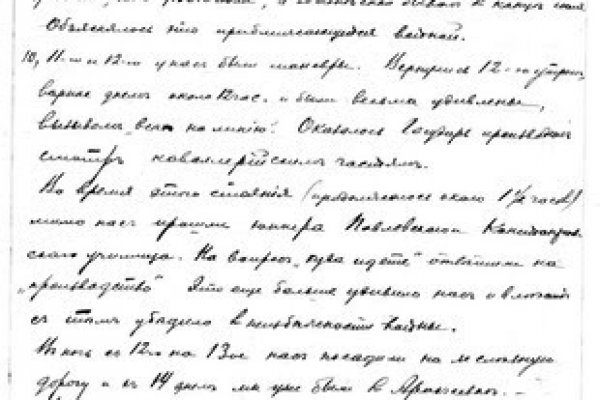 Объяснялось это приближающейся войной.
10, 11-го и 12-го у нас были маневры. Вернулись 12-го утром,
вернее днем около 12 час. и были весьма удивлены,
вызовом "всех на линию". Оказалось Государь производил
смотр кавалерийским частям.
Во время этого стояния (продолжалось около 1½ часов)
мимо нас прошли юнкера Павловского
ского училища. На вопрос "куда идете" ответили на
"производство" Эти еще больше удивило нас и
с тем убедило в неизбежности войны.
В ночь с 12го на 13ое нас посадили на железную
дорогу и к 14 днем мы уже были в